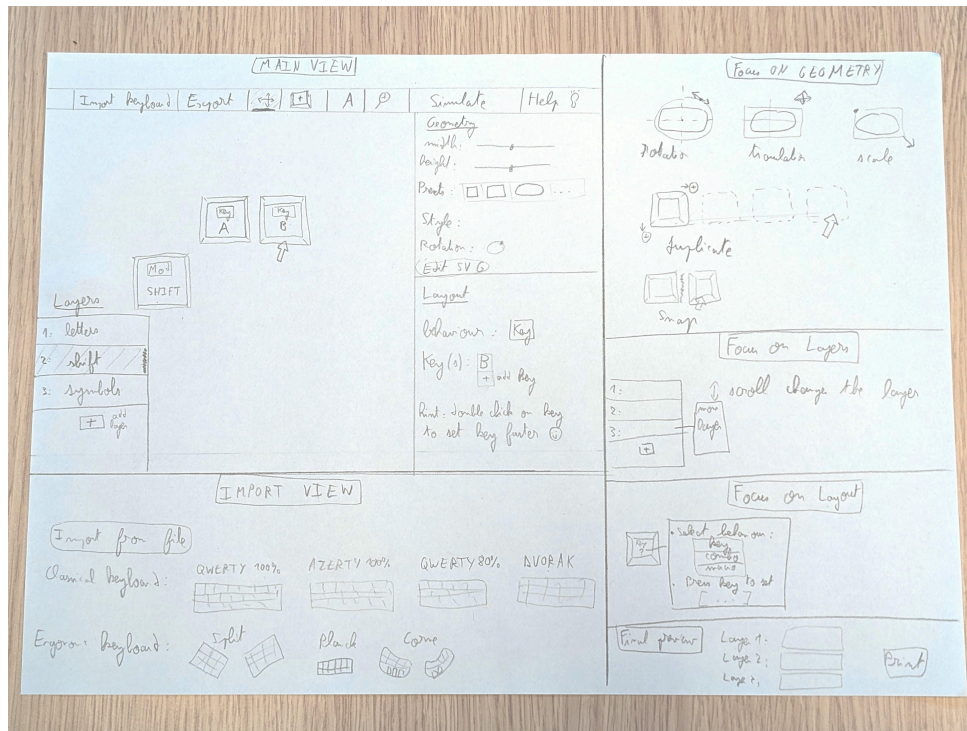 MAIN VIEW
Import Keyboard Export A Simulate Help
Geometry
width:
height:
Style:
Rotation:
Edit SVG
Key A
Key B
Mod
SHIFT
Layout
behaviour: Key
Key(s): B
+ add key
Hint: double click on key
to set key faster
Layers
1: letters
2: shift
3: symbols
+ add layer
IMPORT VIEW
Import from file
Classical keyboard: QWERTY 100% AZERTY 100% QWERTY 80% DVORAK
Split Corne
Focus ON GEOMETRY
Rotation translation scale
Duplicate
Snap
Focus on Layers
1:
2:
3:
+
scroll change the layer
Focus on Layout
Select behaviour:
key
combo
Press key to set
[...]
Final preview
Layer 1:
Layer 2:
Print